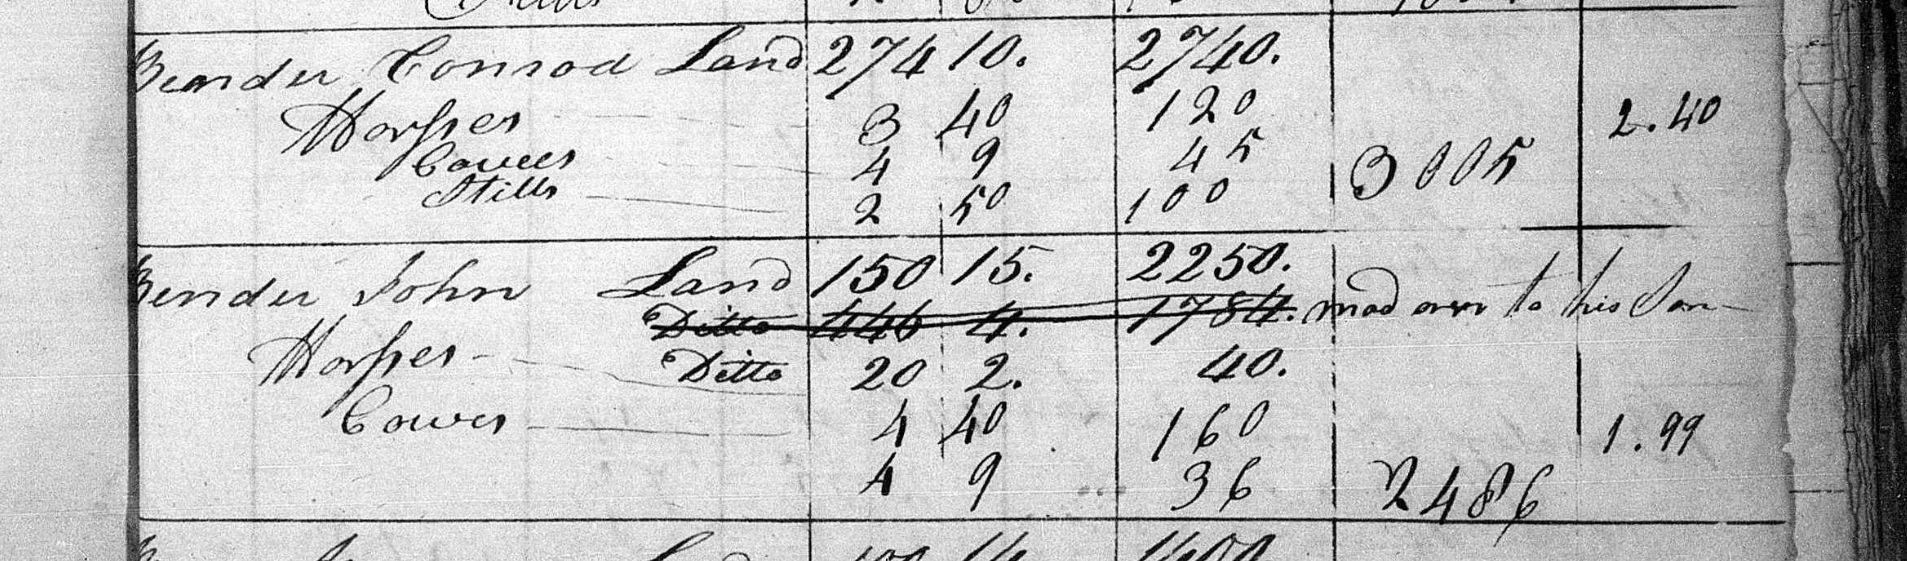 Stills
Bender Conrod Land 274 10. 2740.
Horses 3 40 120 2.40
Cowes 4 9 45 3005
Stills 2 50 100
Bender John Land 150 15. 2250.
Ditto 446 4. 1784. mad over to his Son
Horses Ditto 20 2. 40.
Cowes 4 40 160 1.99
4 9 36 2486
Land 100 14 1400